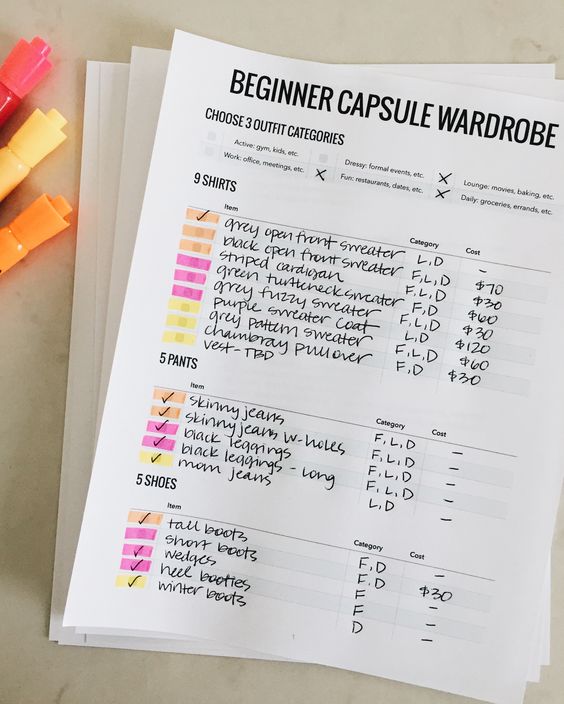 BEGINNER CAPSULE WARDROBE
CHOOSE 3 OUTFIT CATEGORIES
Active: gym, kids, etc. Dressy: formal events, etc. X Lounge: movies, baking, etc.
Work: office, meetings, etc. X Fun: restaurants, dates, etc. X Daily: groceries, errands, etc.
9 SHIRTS
Item Category Cost
✓ grey open front sweater L, D –
black open front sweater F, L, D $70
striped cardigan F, L, D $30
green turtleneck sweater F, D $60
grey fuzzy sweater F, L, D $30
purple sweater coat L, D $120
grey pattern sweater F, L, D $60
chambray pullover F, D $30
vest - TBD
5 PANTS
Item Category Cost
✓ skinny jeans F, L, D –
✓ skinny jeans w-holes F, L, D –
✓ black leggings F, L, D –
✓ black leggings - long F, L, D –
✓ mom jeans L, D –
5 SHOES
Item Category Cost
✓ tall boots F, D –
short boots F, D $30
✓ wedges F –
✓ heel booties F –
✓ winter boots D –